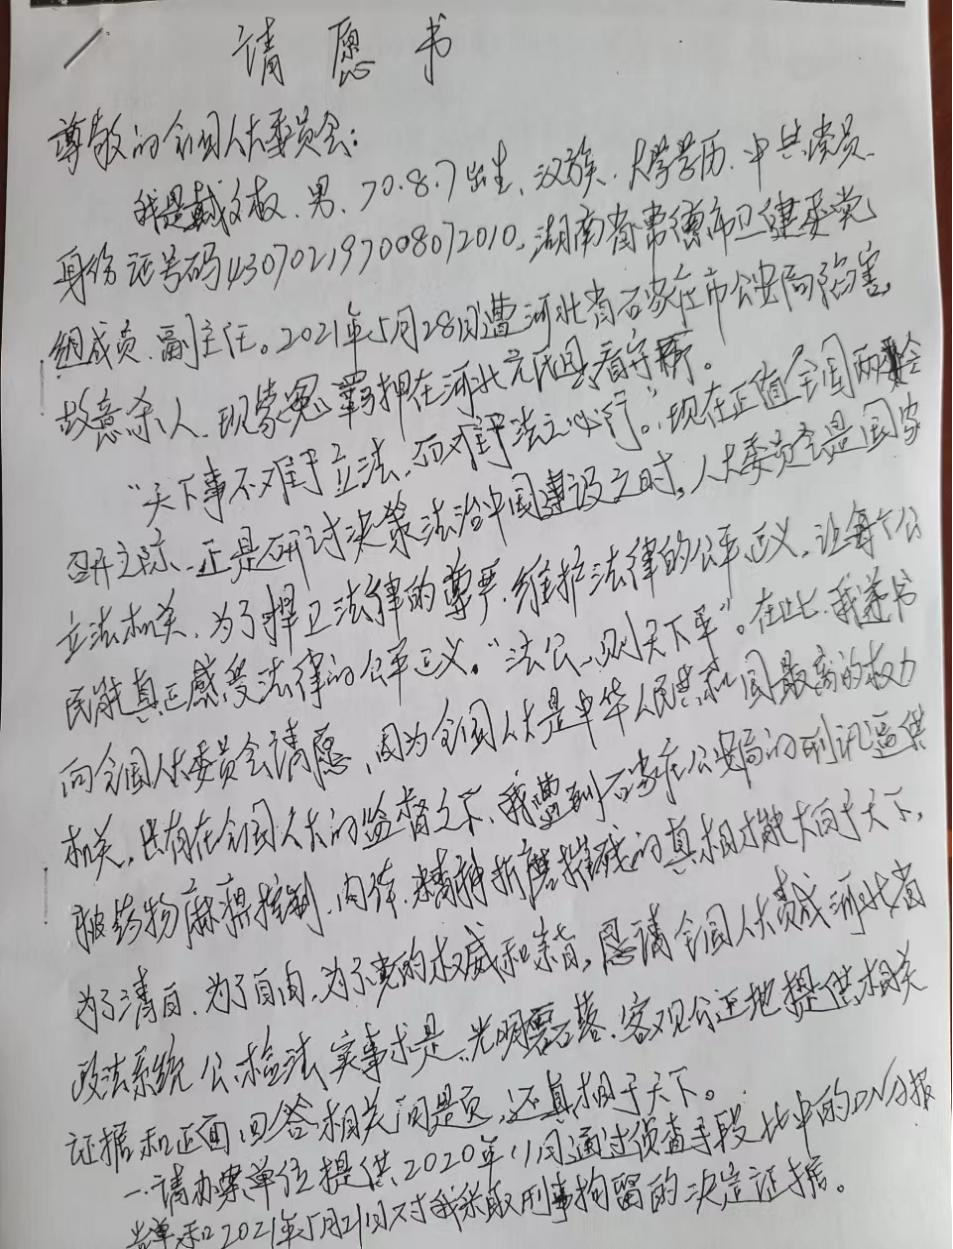 请愿书
尊敬的全国人大委员会：
我是戴文板、男、70.8.7出生、汉族、大学学历、中共党员、
身份证号码430702197008072010、湖南省常德市卫健委党
组成员、副主任。2021年5月28日遭河北省石家庄市公安局陷害
故意杀人、现蒙冤羁押在河北元氏县看守所。
“天下事不难于立法、而难于法之必行”。现在正值全国两会
召开之际、正是研讨决策法治中国建设之时，人大委员会是国家
立法机关、为了捍卫法律的尊严、维护法律的公平正义、让每个公
民能真正感受法律的公平正义。“法公、则天下平”。在此、我遂书
向全国人大委员会请愿、因为全国人大是中华人民共和国最高的权力
机关，只有在全国人大的监督之下、我遭到石家庄公安局的刑讯逼供
被药物麻痹控制、肉体、精神折磨摧残的真相才能大白于天下，
为了清白、为了自由、为了党的权威和宗旨，恳请全国人大责成河北省
政法系统公、检、法、实事求是、光明磊落、客观公正地提供相关
证据和正面回答相关问题、还真相于天下。
一、请办案单位提供2020年11月通过侦查手段比中的DNA报
告单和2021年5月21日对我采取刑事拘留的决定证据。